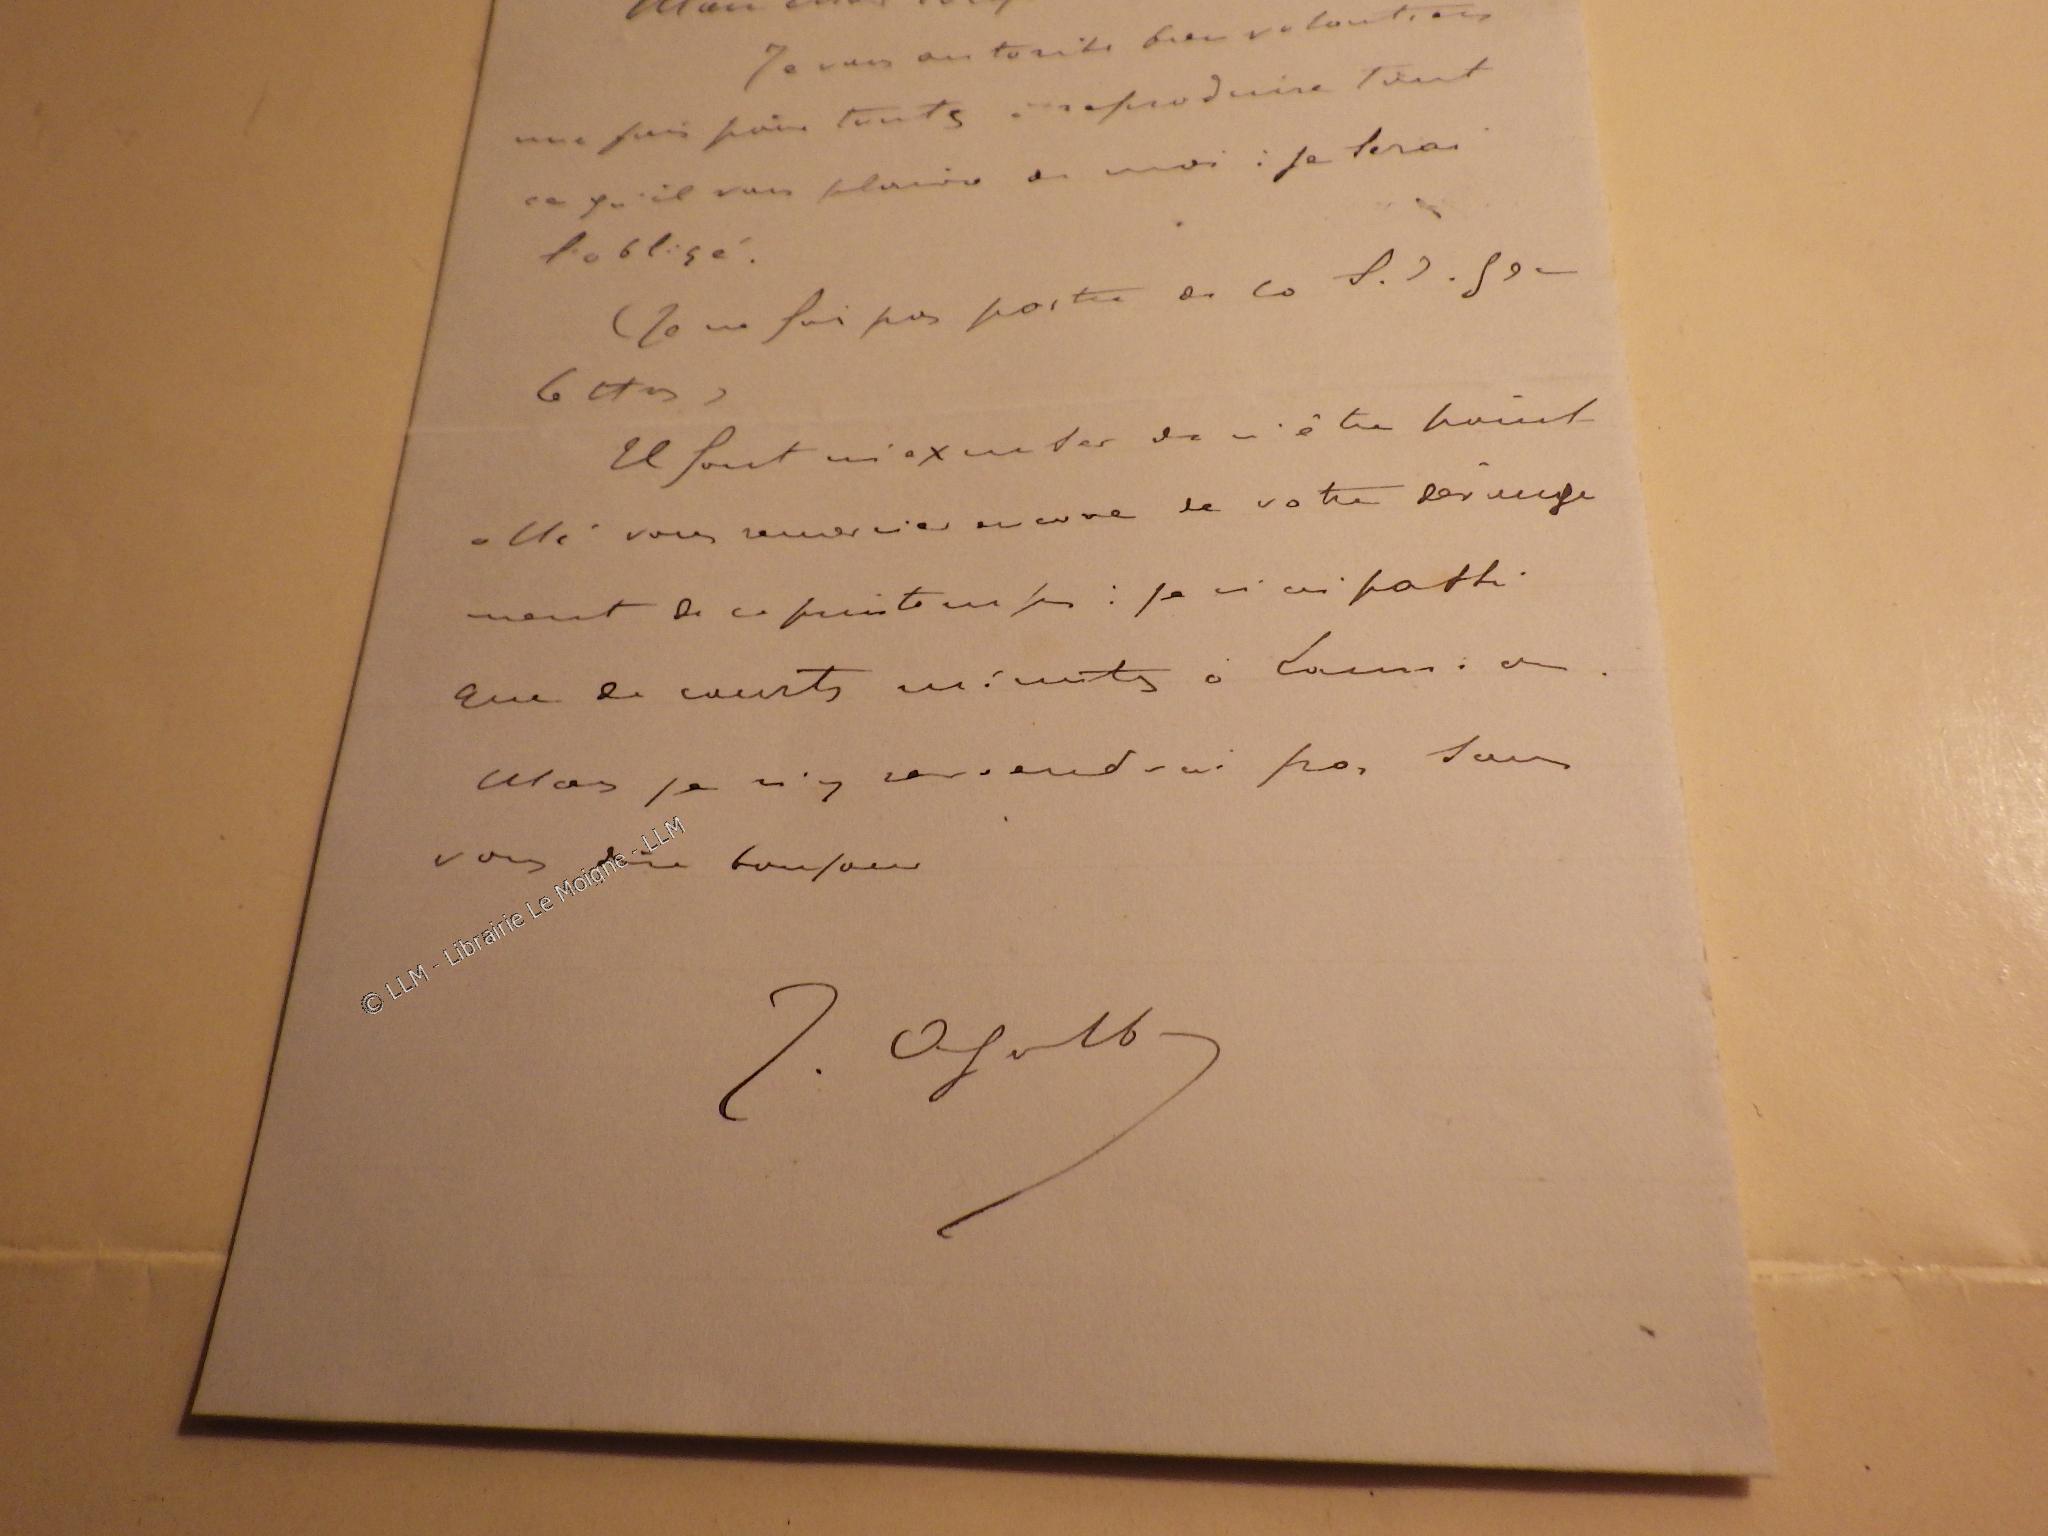 Mon cher
Je vous autorise bien volontiers
une fois pour toutes à reproduire tout
ce qu'il vous plaira de moi : je serai
l'obligé.
(Je ne fais pas partie de la S. D. Gen
Lettres)
Il faut m'excuser de n'être point
allé vous remercier encore de votre dérange
ment de ce printemps : je n'ai passé
que de courts minutes à Lannion.
Mais je n'y reviendrai pas sans
vous dire bonjour
© LLM - Librairie Le Moigne - LLM